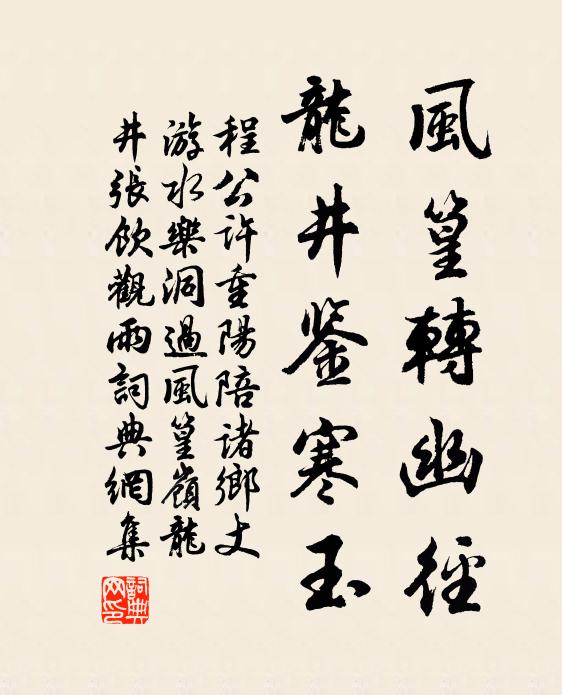 風篁轉幽徑
龍井鑒寒玉
程公許重陽陪諸鄉丈
游水樂洞過風篁嶺龍
井張飲觀雨詞典網集
詞典
网印